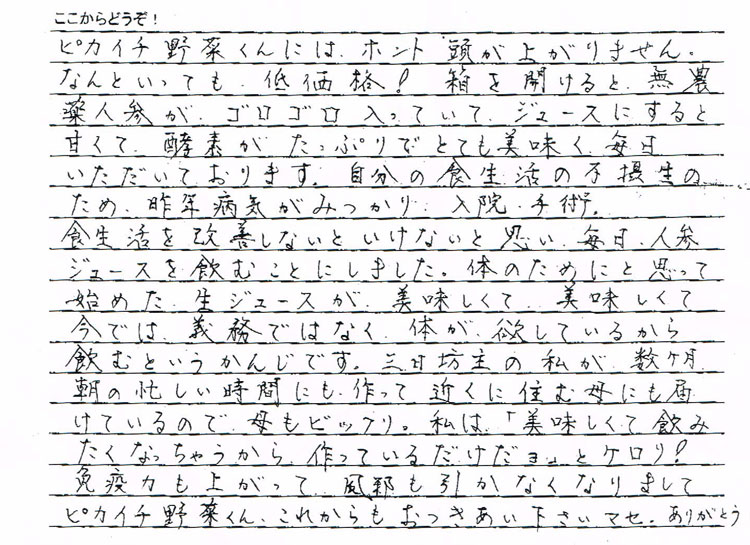 ここからどうぞ!
ピカイチ野菜くんには、ホント頭が上がりません。
なんといっても、低価格! 箱を開けると、無農
薬人参が、ゴロゴロ入っていて、ジュースにすると
甘くて、酵素がたっぷりでとても美味く、毎日
いただいております。自分の食生活の不摂生の
ため、昨年病気がみつかり、入院、手術。
食生活を改善しないといけないと思い、毎日、人参
ジュースを飲むことにしました。体のためにと思って
始めた、生ジュースが、美味しくて、美味しくて
今では、義務ではなく、体が、欲しているから
飲むというかんじです。三日坊主の私が、数ヶ月
朝の忙しい時間にも、作って近くに住む母にも届
けているので、母もビックリ。私は、「美味しくて飲み
たくなっちゃうから、作っているだけだョ」とケロリ!
免疫力も上がって、風邪も引かなくなりまして
ピカイチ野菜くん、これからもおつきあい下さいマセ。ありがとう